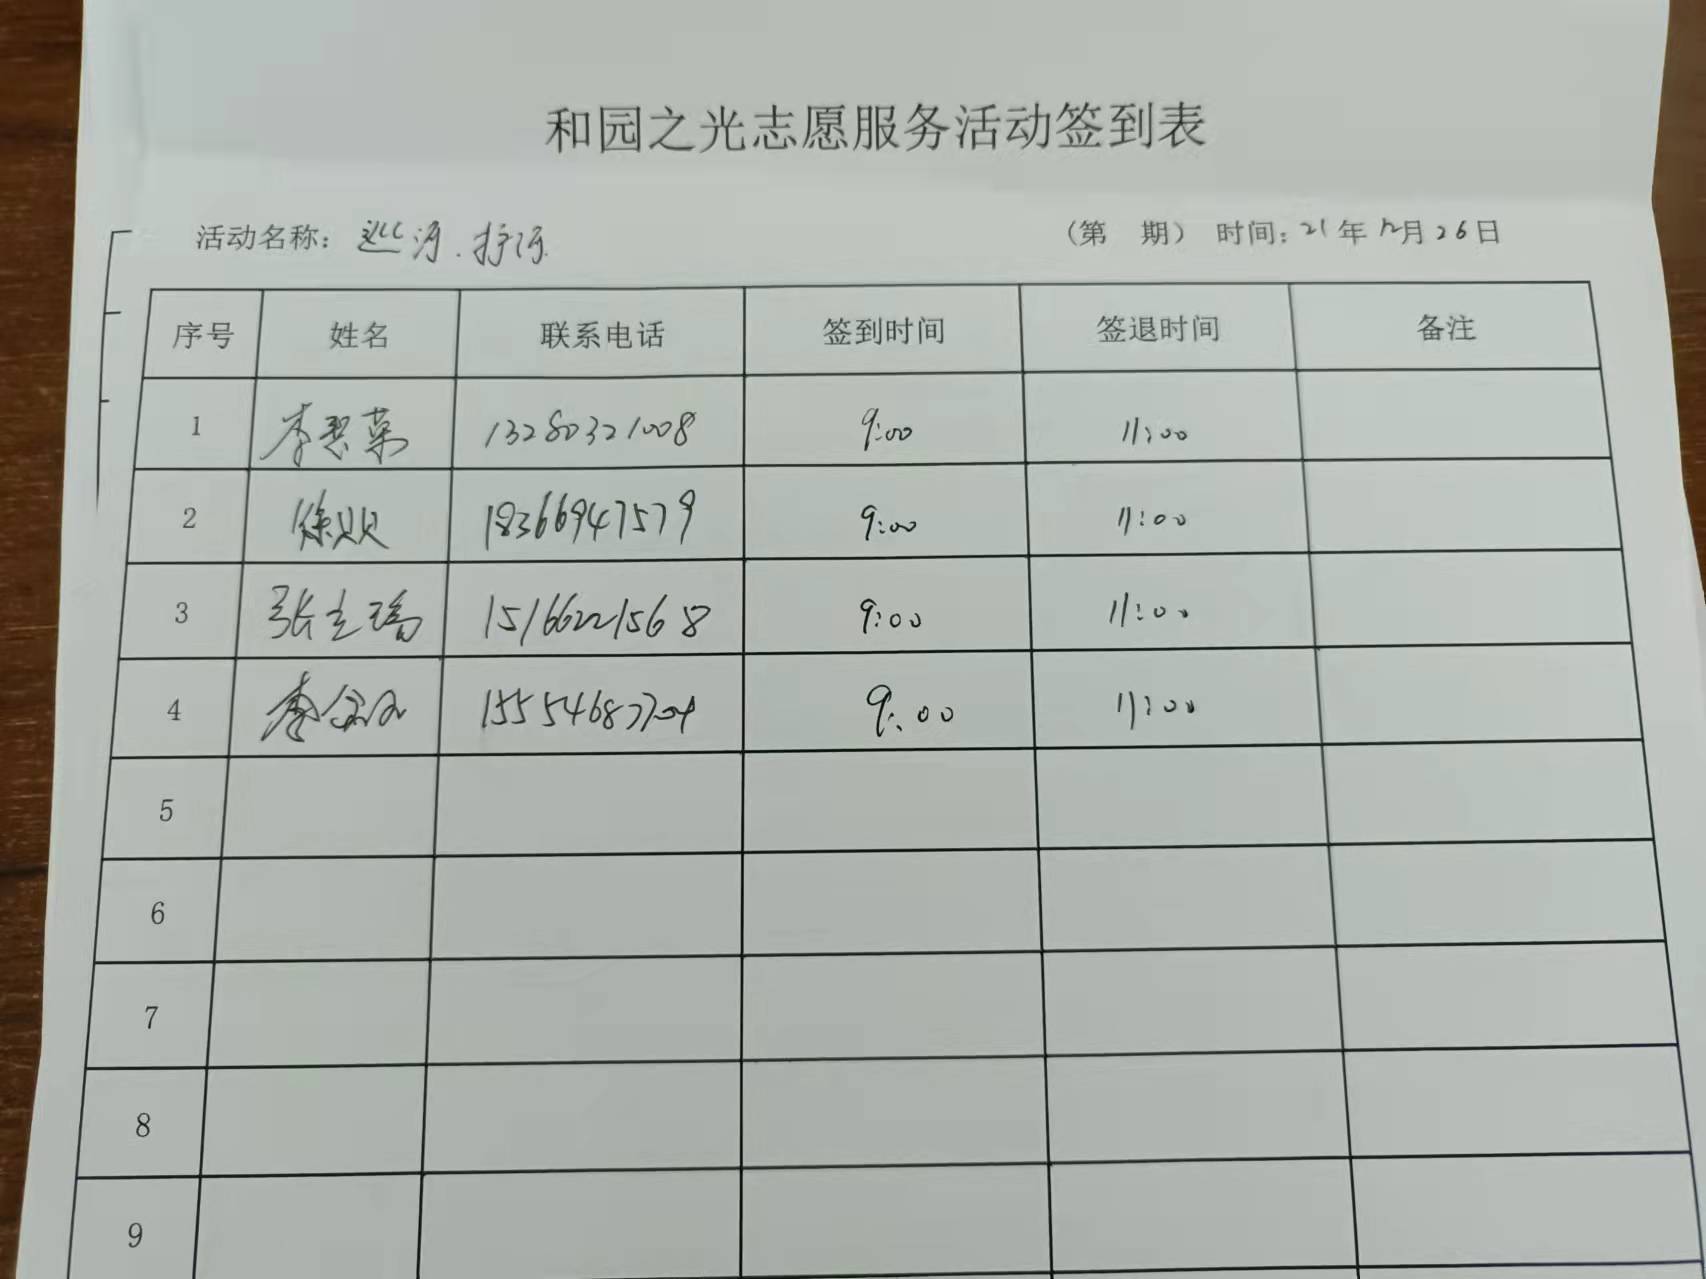 和园之光志愿服务活动签到表
活动名称：巡河.护河 （第 期） 时间：21年12月26日
序号 姓名 联系电话 签到时间 签退时间 备注
1 李 菜 13280321008 9:00 11:00
2 徐 18366947579 9:00 11:00
3 张立瑞 15166221568 9:00 11:00
4 9:00 11:00
5
6
7
8
9